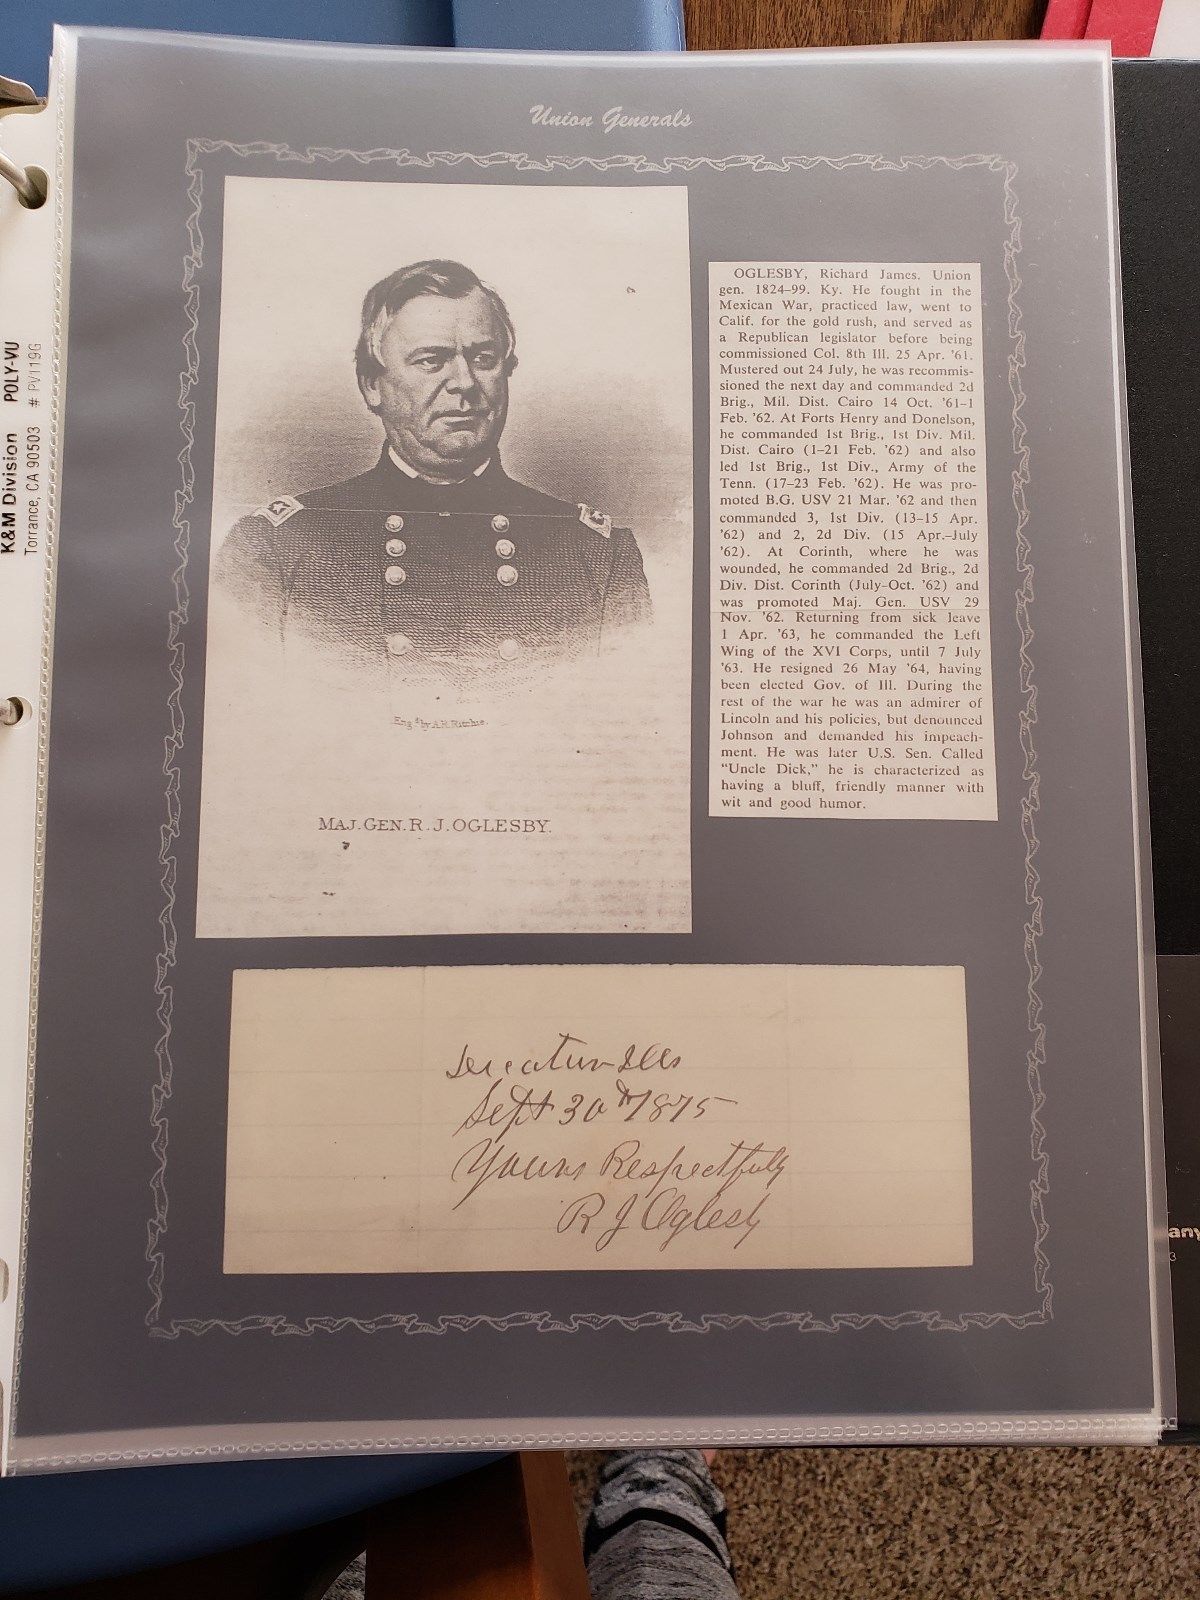 Union Generals
OGLESBY, Richard James. Union
gen. 1824–99. Ky. He fought in the
Mexican War, practiced law, went to
Calif. for the gold rush, and served as
a Republican legislator before being
commissioned Col. 8th Ill. 25 Apr. '61.
Mustered out 24 July, he was recommis-
sioned the next day and commanded 2d
Brig., Mil. Dist. Cairo 14 Oct. '61–1
Feb. '62. At Forts Henry and Donelson,
he commanded 1st Brig., 1st Div. Mil.
Dist. Cairo (1–21 Feb. '62) and also
led 1st Brig., 1st Div., Army of the
Tenn. (17–23 Feb. '62). He was pro-
moted B.G. USV 21 Mar. '62 and then
commanded 3, 1st Div. (13–15 Apr.
'62) and 2, 2d Div. (15 Apr.–July
'62). At Corinth, where he was
wounded, he commanded 2d Brig., 2d
Div. Dist. Corinth (July–Oct. '62) and
was promoted Maj. Gen. USV 29
Nov. '62. Returning from sick leave
1 Apr. '63, he commanded the Left
Wing of the XVI Corps, until 7 July
'63. He resigned 26 May '64, having
been elected Gov. of Ill. During the
rest of the war he was an admirer of
Lincoln and his policies, but denounced
Johnson and demanded his impeach-
ment. He was later U.S. Sen. Called
“Uncle Dick,” he is characterized as
having a bluff, friendly manner with
wit and good humor.
Eng.d by A.H. Ritchie.
MAJ. GEN. R. J. OGLESBY.
Decatur Ills
Sept 30th 1875
Yours Respectfully
R J Oglesby
K&M Division POLY-VU
Torrance, CA 90503 # PV119G
any
3